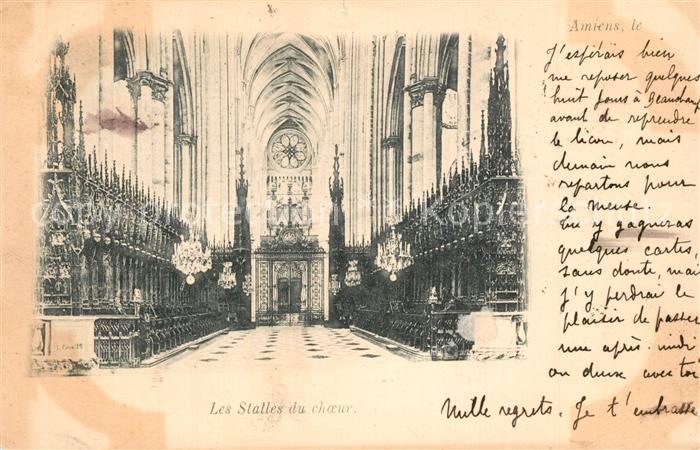 Amiens, le
J'espérais bien
me reposer quelques
huit jours à Beauchamp
avant de reprendre
le licou, mais
demain nous
repartons pour
la Meuse.
Tu y gagneras
quelques cartes,
sans doute, mais
j'y perdrai le
plaisir de passer
une après-midi
ou deux avec toi
Mille regrets. Je t'embrasse
Les Stalles du chœur.